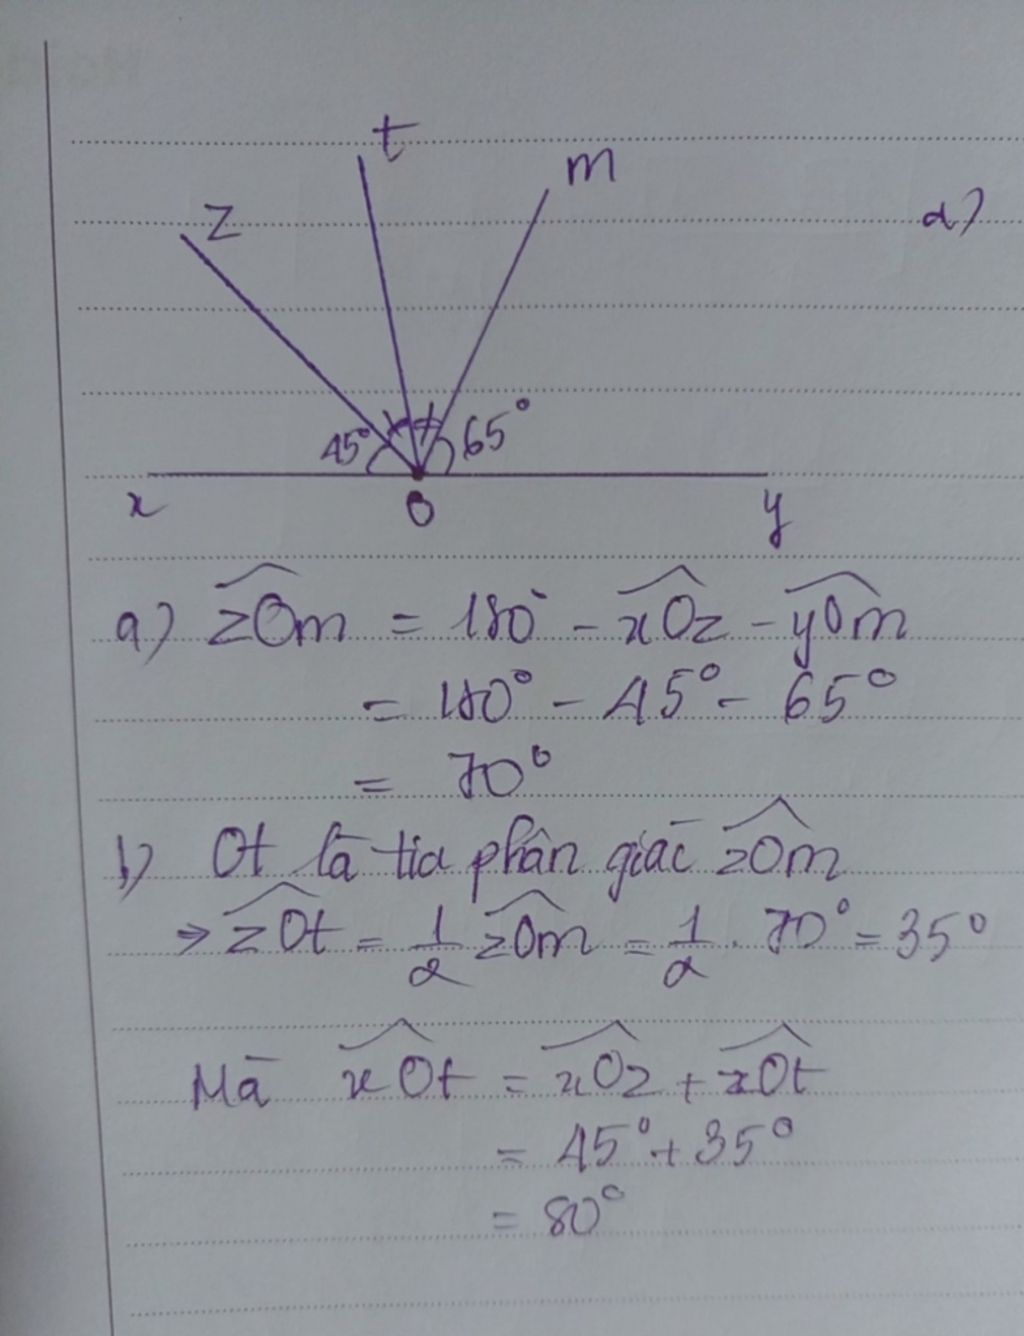 t
m
z
a)
45° 65°
x O y
a) zOm = 180° - xOz - yOm
= 180° - 45° - 65°
= 70°
b) Ot là tia phân giác zOm
⇒ zOt = 1/2 zOm = 1/2 . 70° = 35°
Mà xOt = xOz + zOt
= 45° + 35°
= 80°